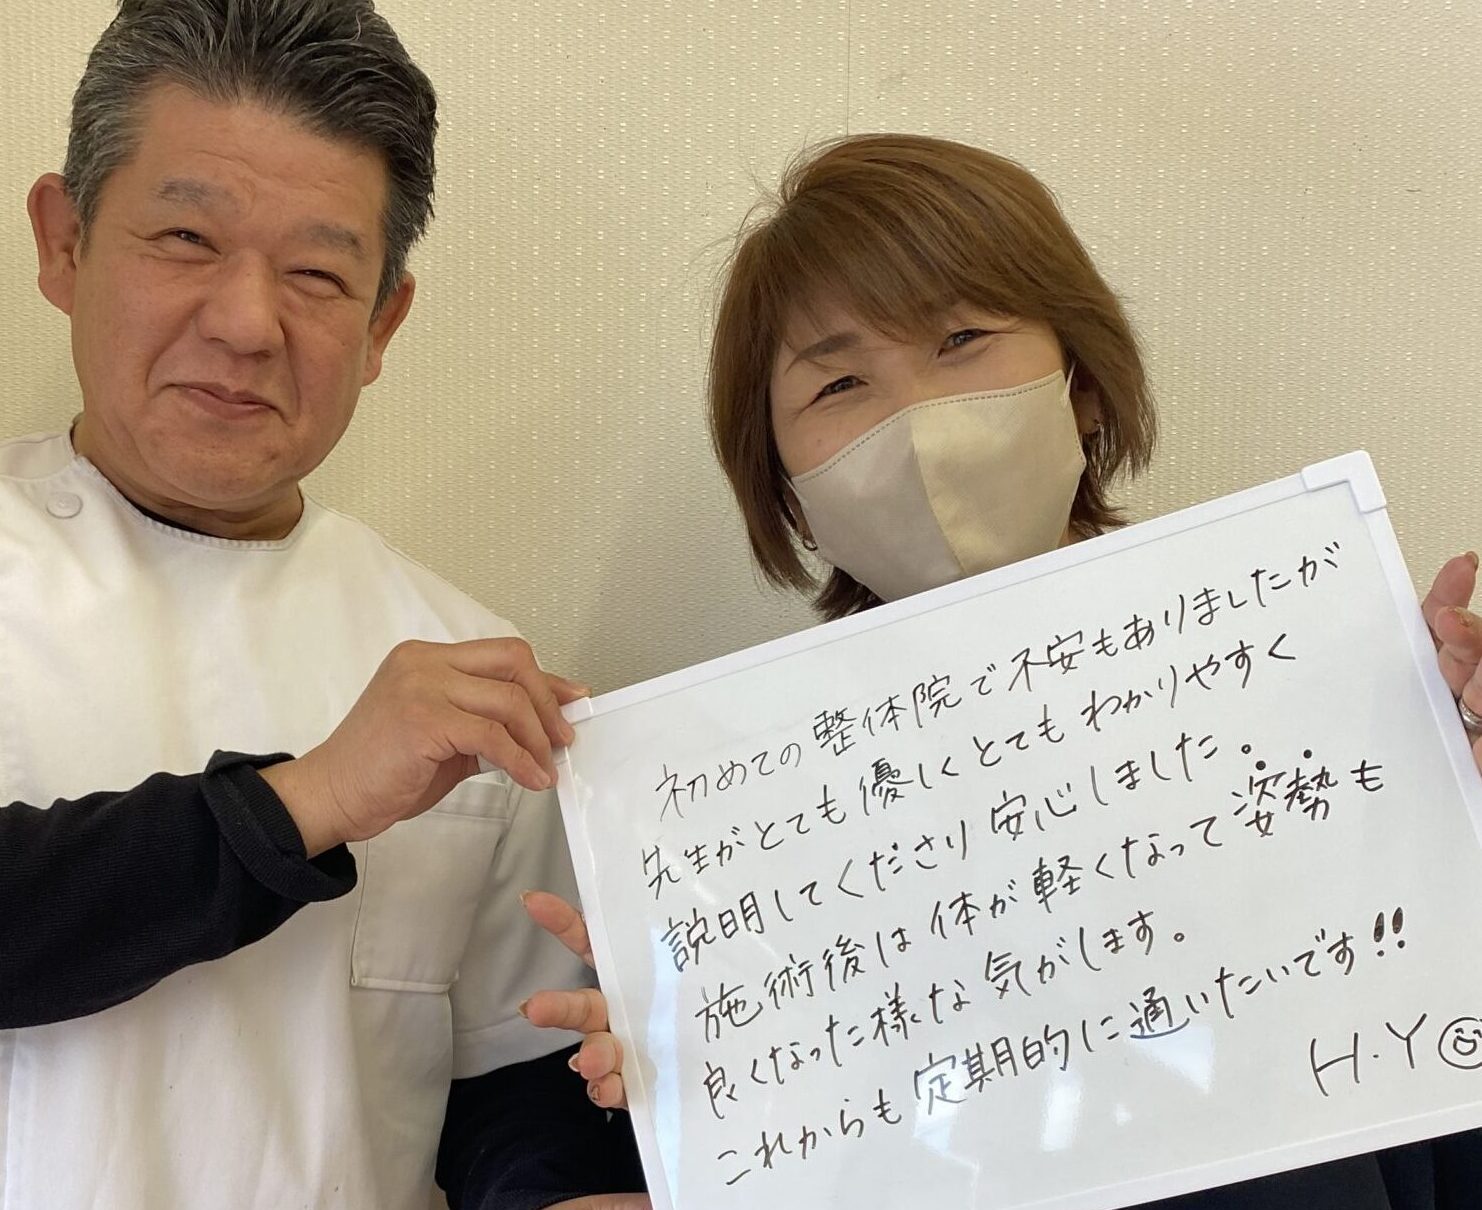 初めての整体院で不安もありましたが
先生がとても優しくとてもわかりやすく
説明してくださり安心しました。
施術後は体が軽くなって姿勢も
良くなった様な気がします。
これからも定期的に通いたいです!!
H.Y